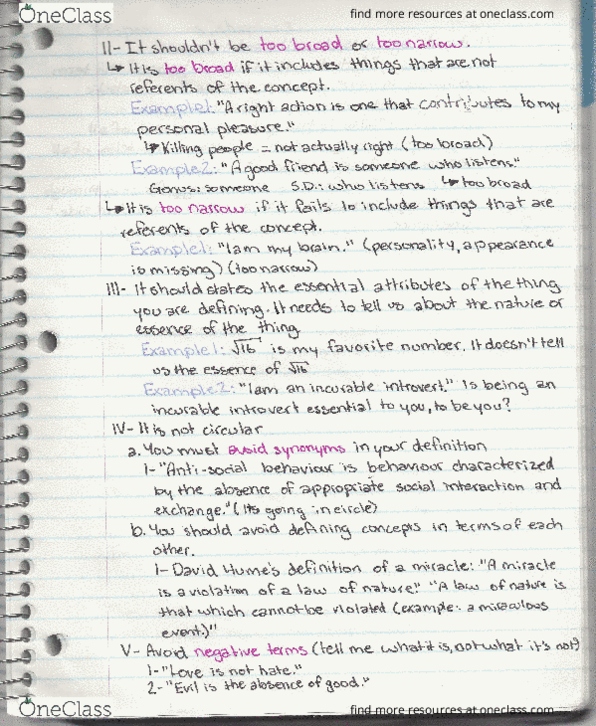 OneClass
find more resources at oneclass.com
II- It shouldn't be too broad or too narrow.
↳ It is too broad if it includes things that are not
referents of the concept.
Example1: "A right action is one that contributes to my
personal pleasure."
↳ Killing people = not actually right (too broad)
Example2: "A good friend is someone who listens."
Genus: someone S.D.: who listens ↳ too broad
↳ It is too narrow if it fails to include things that are
referents of the concept.
Example1: "I am my brain." (personality, appearance
is missing) (too narrow)
III- It should states the essential attributes of the thing
you are defining. It needs to tell us about the nature or
essence of the thing
Example1: √16 is my favorite number. It doesn't tell
us the essence of √16
Example2: "I am an incurable introvert." Is being an
incurable introvert essential to you, to be you?
IV- It is not circular
a. You must avoid synonyms in your definition
1- "Anti-social behaviour is behaviour characterized
by the absence of appropriate social interaction and
exchange." (Its going in circle)
b. You should avoid defining concepts in terms of each
other.
1- David Hume's definition of a miracle: "A miracle
is a violation of a law of nature." "A law of nature is
that which cannot be violated (example: a miraculous
event.)"
V- Avoid negative terms (tell me what it is, not what it's not)
1- "Love is not hate."
2- "Evil is the absence of good."
OneClass
find more resources at oneclass.com